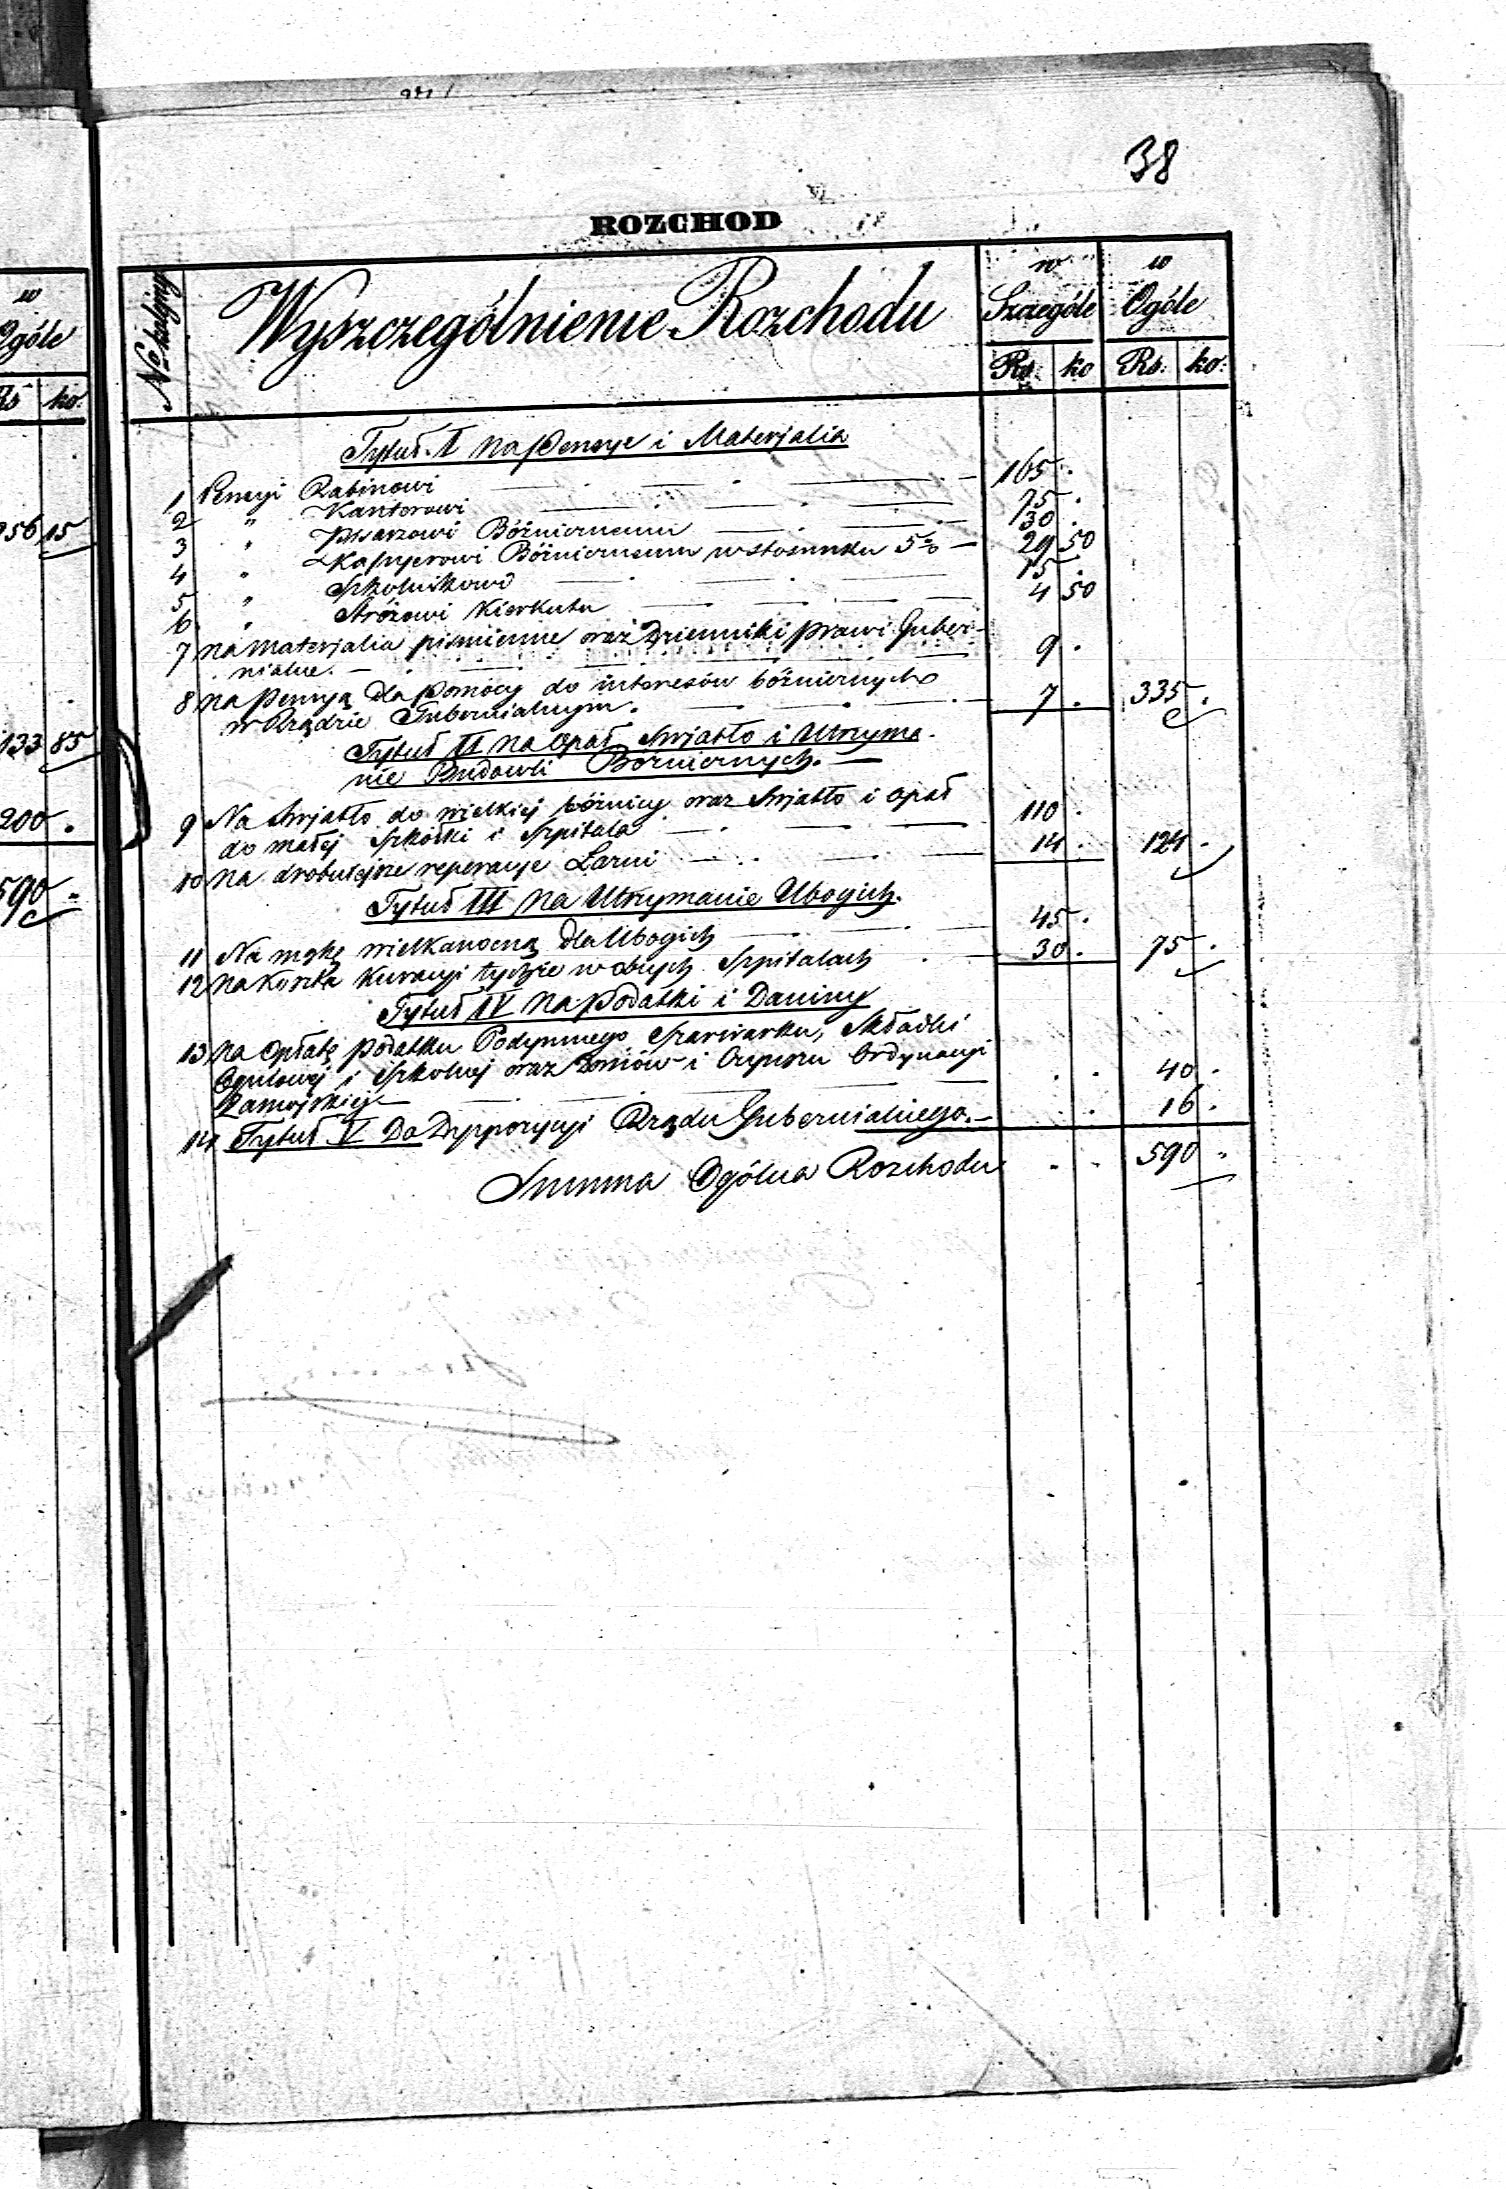 38
ROZCHOD
No kolejny
Wyszczególnienie Rozchodu
w Szczególe
w Ogóle
Rs. ko Rs. ko.
w
Ogóle
Rs ko.
156 15
133 85
200 .
590 .
Tytuł I na Pensye i Materjalia
1 Pensyi Rabinowi 165 .
2 " Kantorowi 75 .
3 " Pisarzowi Bóżnicznemu 30 .
4 " Kassyerowi Bóżnicznemu w stosunku 5% 29 50
5 " Szkolnikowi 15 .
6 " Stróżowi Kierkutu 4 50
7 na materjalia piśmienne oraz Dzienniki praw i Guber-
nialne. 9 .
8 na Pensyą dla pomocy do interesów bóżnicznych
w Rządzie Gubernialnym. 7 . 335 .
Tytuł II na Opał Swiatło i Utrzyma-
nie Budowli Bóżnicznych.
9 Na Swiatło do wielkiej bóżnicy oraz Swiatło i opał
do małej Szkółki i Szpitala 110 .
10 na drobniejsze reperacye Łazni 14 . 124 .
Tytuł III na Utrzymanie Ubogich.
11 Na mąkę wielkanocną dla Ubogich 45 .
12 na koszta Kuracyi tychże w obcych Szpitalach 30 . 75 .
Tytuł IV na podatki i Daniny
13 na opłatę podatku Podymnego Szarwarku, Składki
Ogniowej i Szkolnej oraz Czynszu Ordynacyi
Zamojskiej 40 .
14 Tytuł V Do Dyspozycyi Rządu Gubernialnego. 16 .
Summa Ogólna Rozchodu 590 .